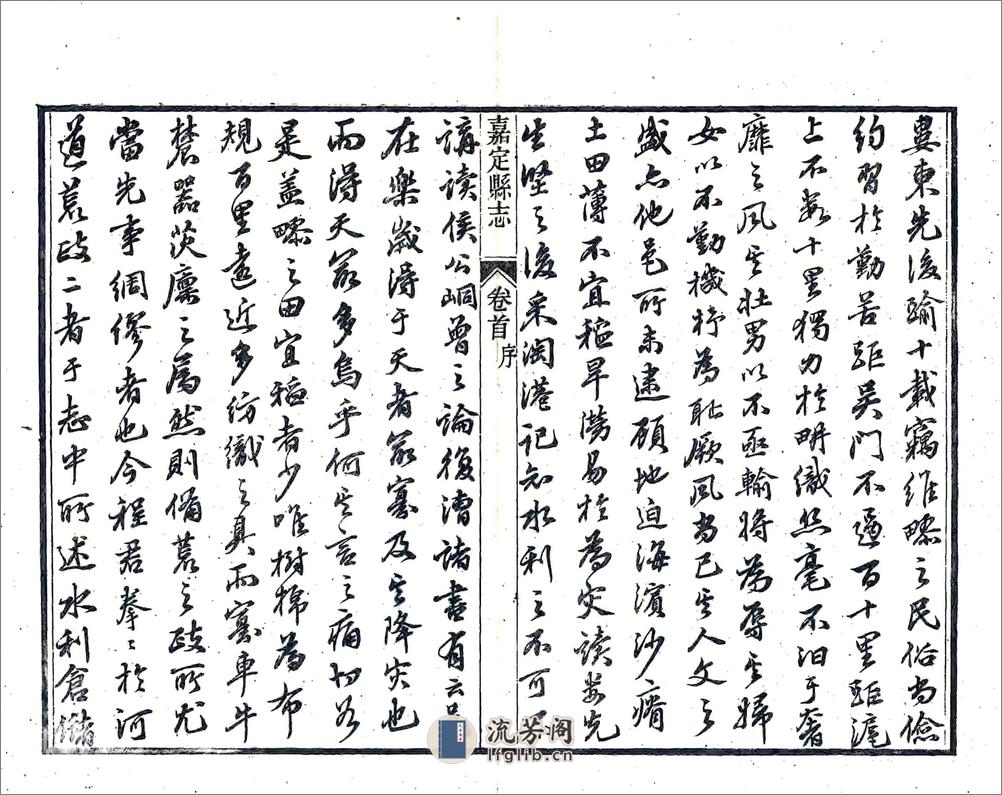 婁東先後踰十載竊維疁之民俗尚儉
約習於勤苦距吳門不過百十里距滬
上不數十里獨力於畊織絲毫不汨于奢
靡之風其壯男以不亟輸將為辱其婦
女以不勤機杼為耻厥風尚已其人文之
盛亦他邑所未逮顧地迫海濱沙瘠
土田薄不宜稻旱澇易於為灾讀婁先
生堅之後采淘港記知水利之不可
嘉定縣志 卷首 序
讀侯公峒曾之論復漕諸書有云
在樂歲得于天者最寡及其降灾也
而得天最多烏乎何其言之痛切若
是蓋疁之田宜稻者少唯樹棉為布
規百里遠近多紡織之具而寡車牛
農器茨廩之屬然則備荒之政所尤
當先事綢繆者也今程君拳拳於河
道荒政二者于志中所述水利倉儲
流芳阁
lfglib.cn